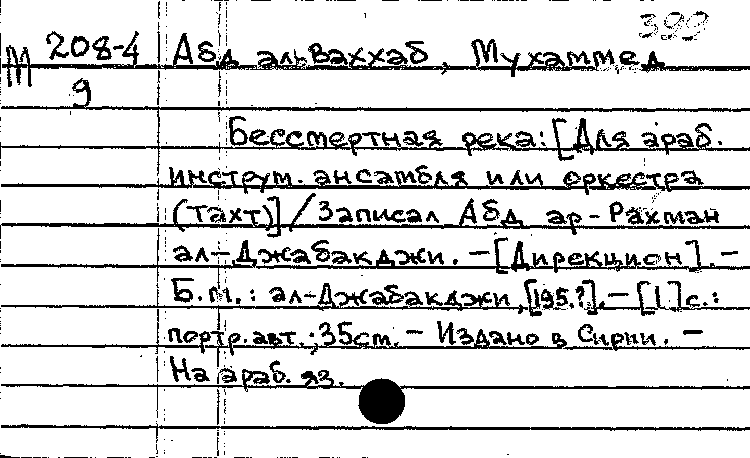 399
М 208-4
9
Абд альВаххаб, Мухаммед
Бессмертная река: [Для араб.
инструм. ансамбля или оркестра
(тахт)] / Записал Абд ар-Рахман
ал-Джабакджи. - [Дирекцион]. -
Б.м.: ал-Джабакджи, [195.?]. - [1] с.:
портр. авт.; 35см. - Издано в Сирии. -
На араб. яз.